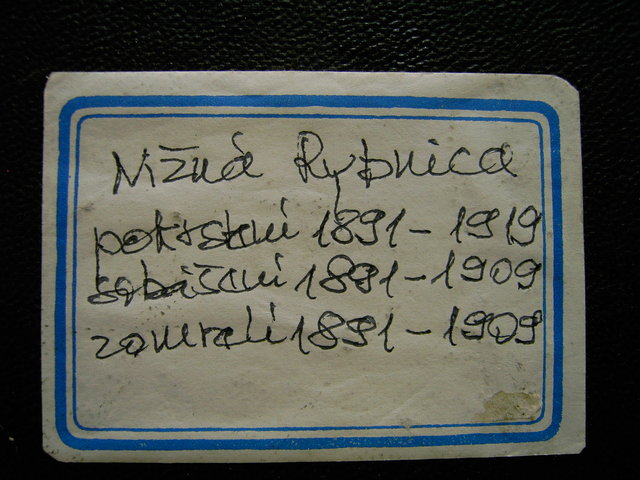 Nižná Rybnica
pokrstení 1891-1919
sobášení 1891-1909
zomreli 1891-1909